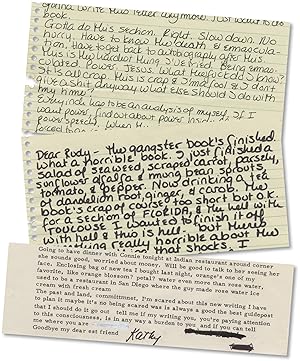 gonna write this letter anymore. Just want to
book.
Gotta do this section. Right. Slow down. No
hurry. Have to know the death & emascula-
tion. Have to get back to autobiography after this.
This is the hardest thing I've tried. Being emascu-
lated. Power. Jesus. What the fuck do I know
It's all crap. This is crap & I'm a fool & I don't
give a shit anyway what else should I do with
my time
Every index has to be an analysis of myself. If I
want power find out about power inside.
Dear Rudy - the gangster book's finished.
What a horrible book. I just finished a
salad of seaweed, scraped carrot, parsely,
sunflower greens, & mung bean sprouts
tomato, & pepper. Now drinking a tea
of dandelion root, ginger, & carob. The
book's crap of course too short but o.k.
for a section of FLORIDA, & the hell with
Toulouse I wanted to finish it off
with hell & this is hell. but there's
nothing really horrible about the
that shocks. I
Going to have dinner with Connie tonight at Indian restaurant around corner
she sounds good, worried about money. Will be good to talk to her seeing her
face. Exciting bag of new tea I bought last night, orange's one of my
favorite, like orange blossom? petal? water even more than rose water,
used to be a restaurant in San Diego where the guy made rose water ice
cream with fresh cream
The past and land, committment, I'm scared about this new writing I have
to plan it maybe it's no being scared was is always a good the best guidepost
that I should do it go out tell me if my writing you, you're paying attention
to this consciousness, is in any way a burden to you and if you can tell
me where you are
Goodbye my dear est friend Kathy